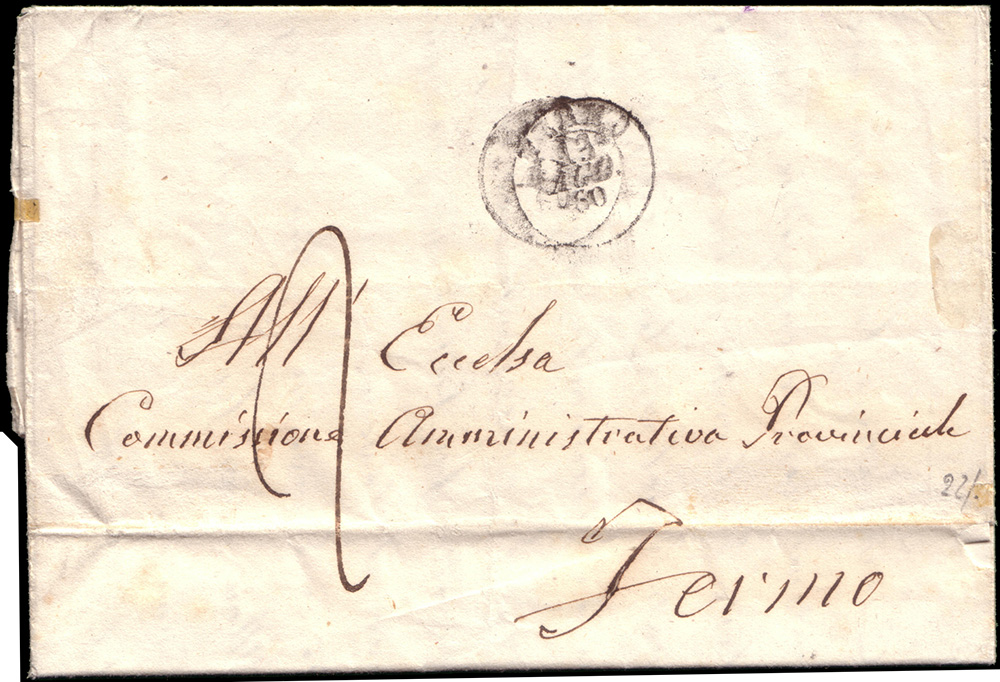 13
AGO.
60
All' Eccelsa
Commissione Amministrativa Provinciale
22/.
Fermo